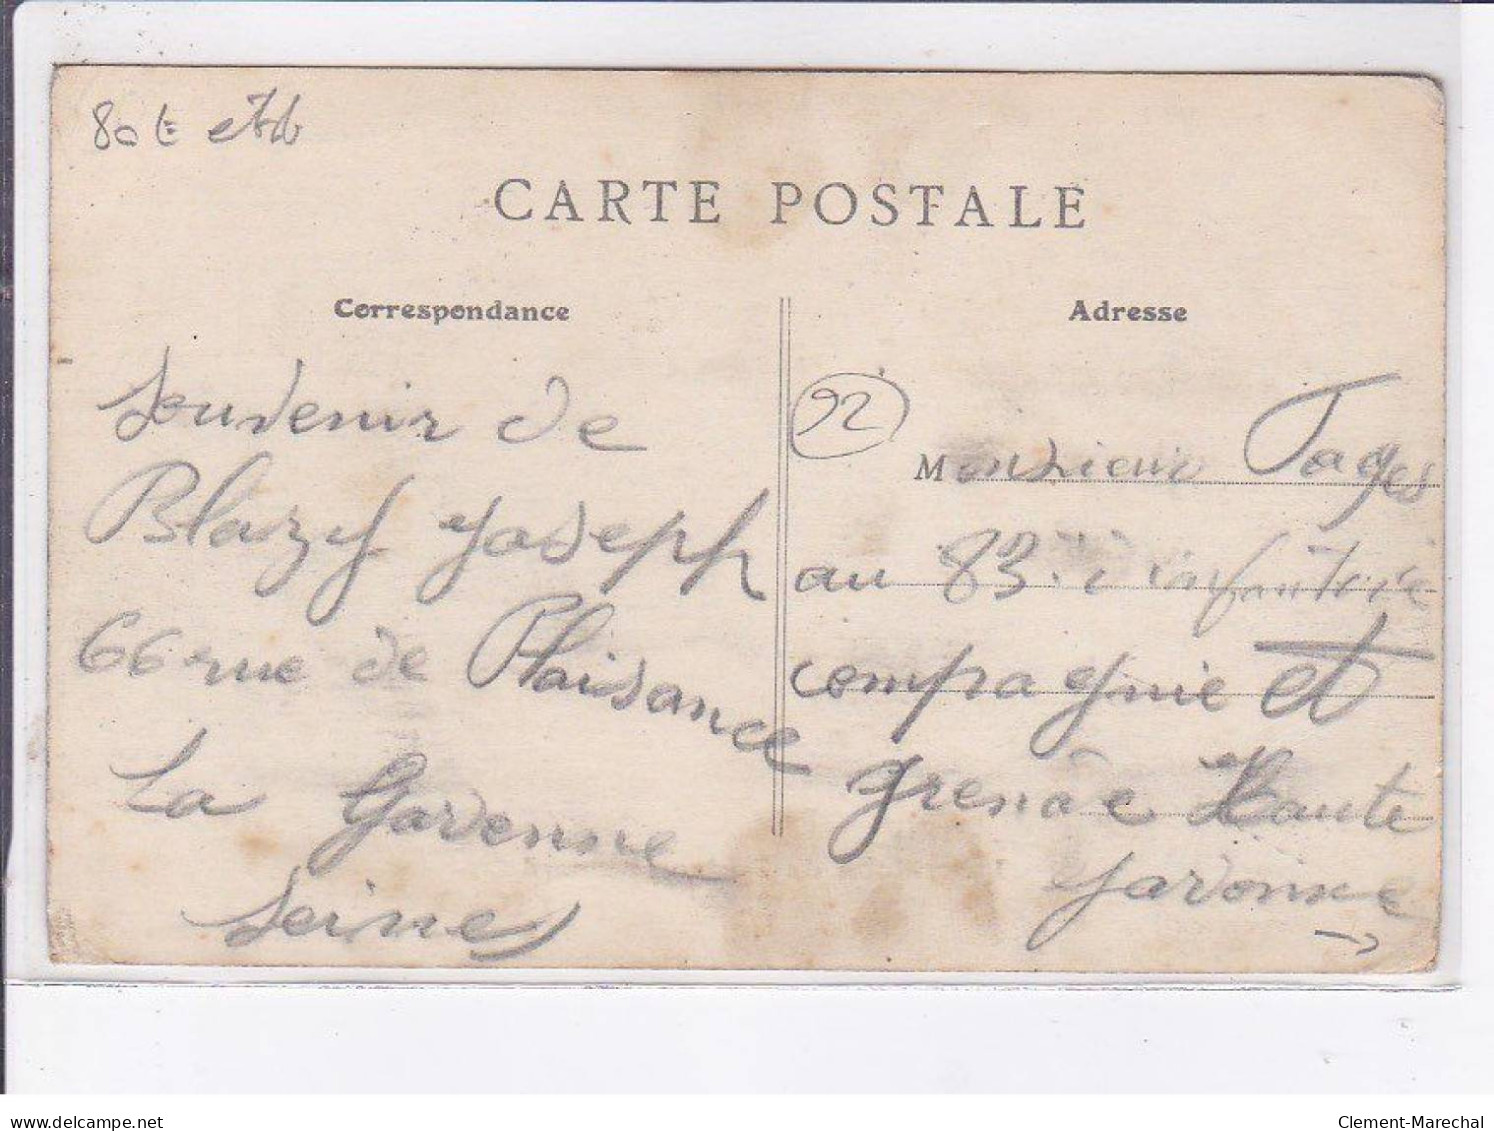 80 E
CARTE POSTALE
Correspondance
Adresse
Souvenir de
Blazy Joseph
66 rue de Plaisance
La Garenne
Seine
92
Monsieur Tages
au 83. i infanterie
compagnie et
grenade Haute
garonne
delcampe.net
Clement-Marechal